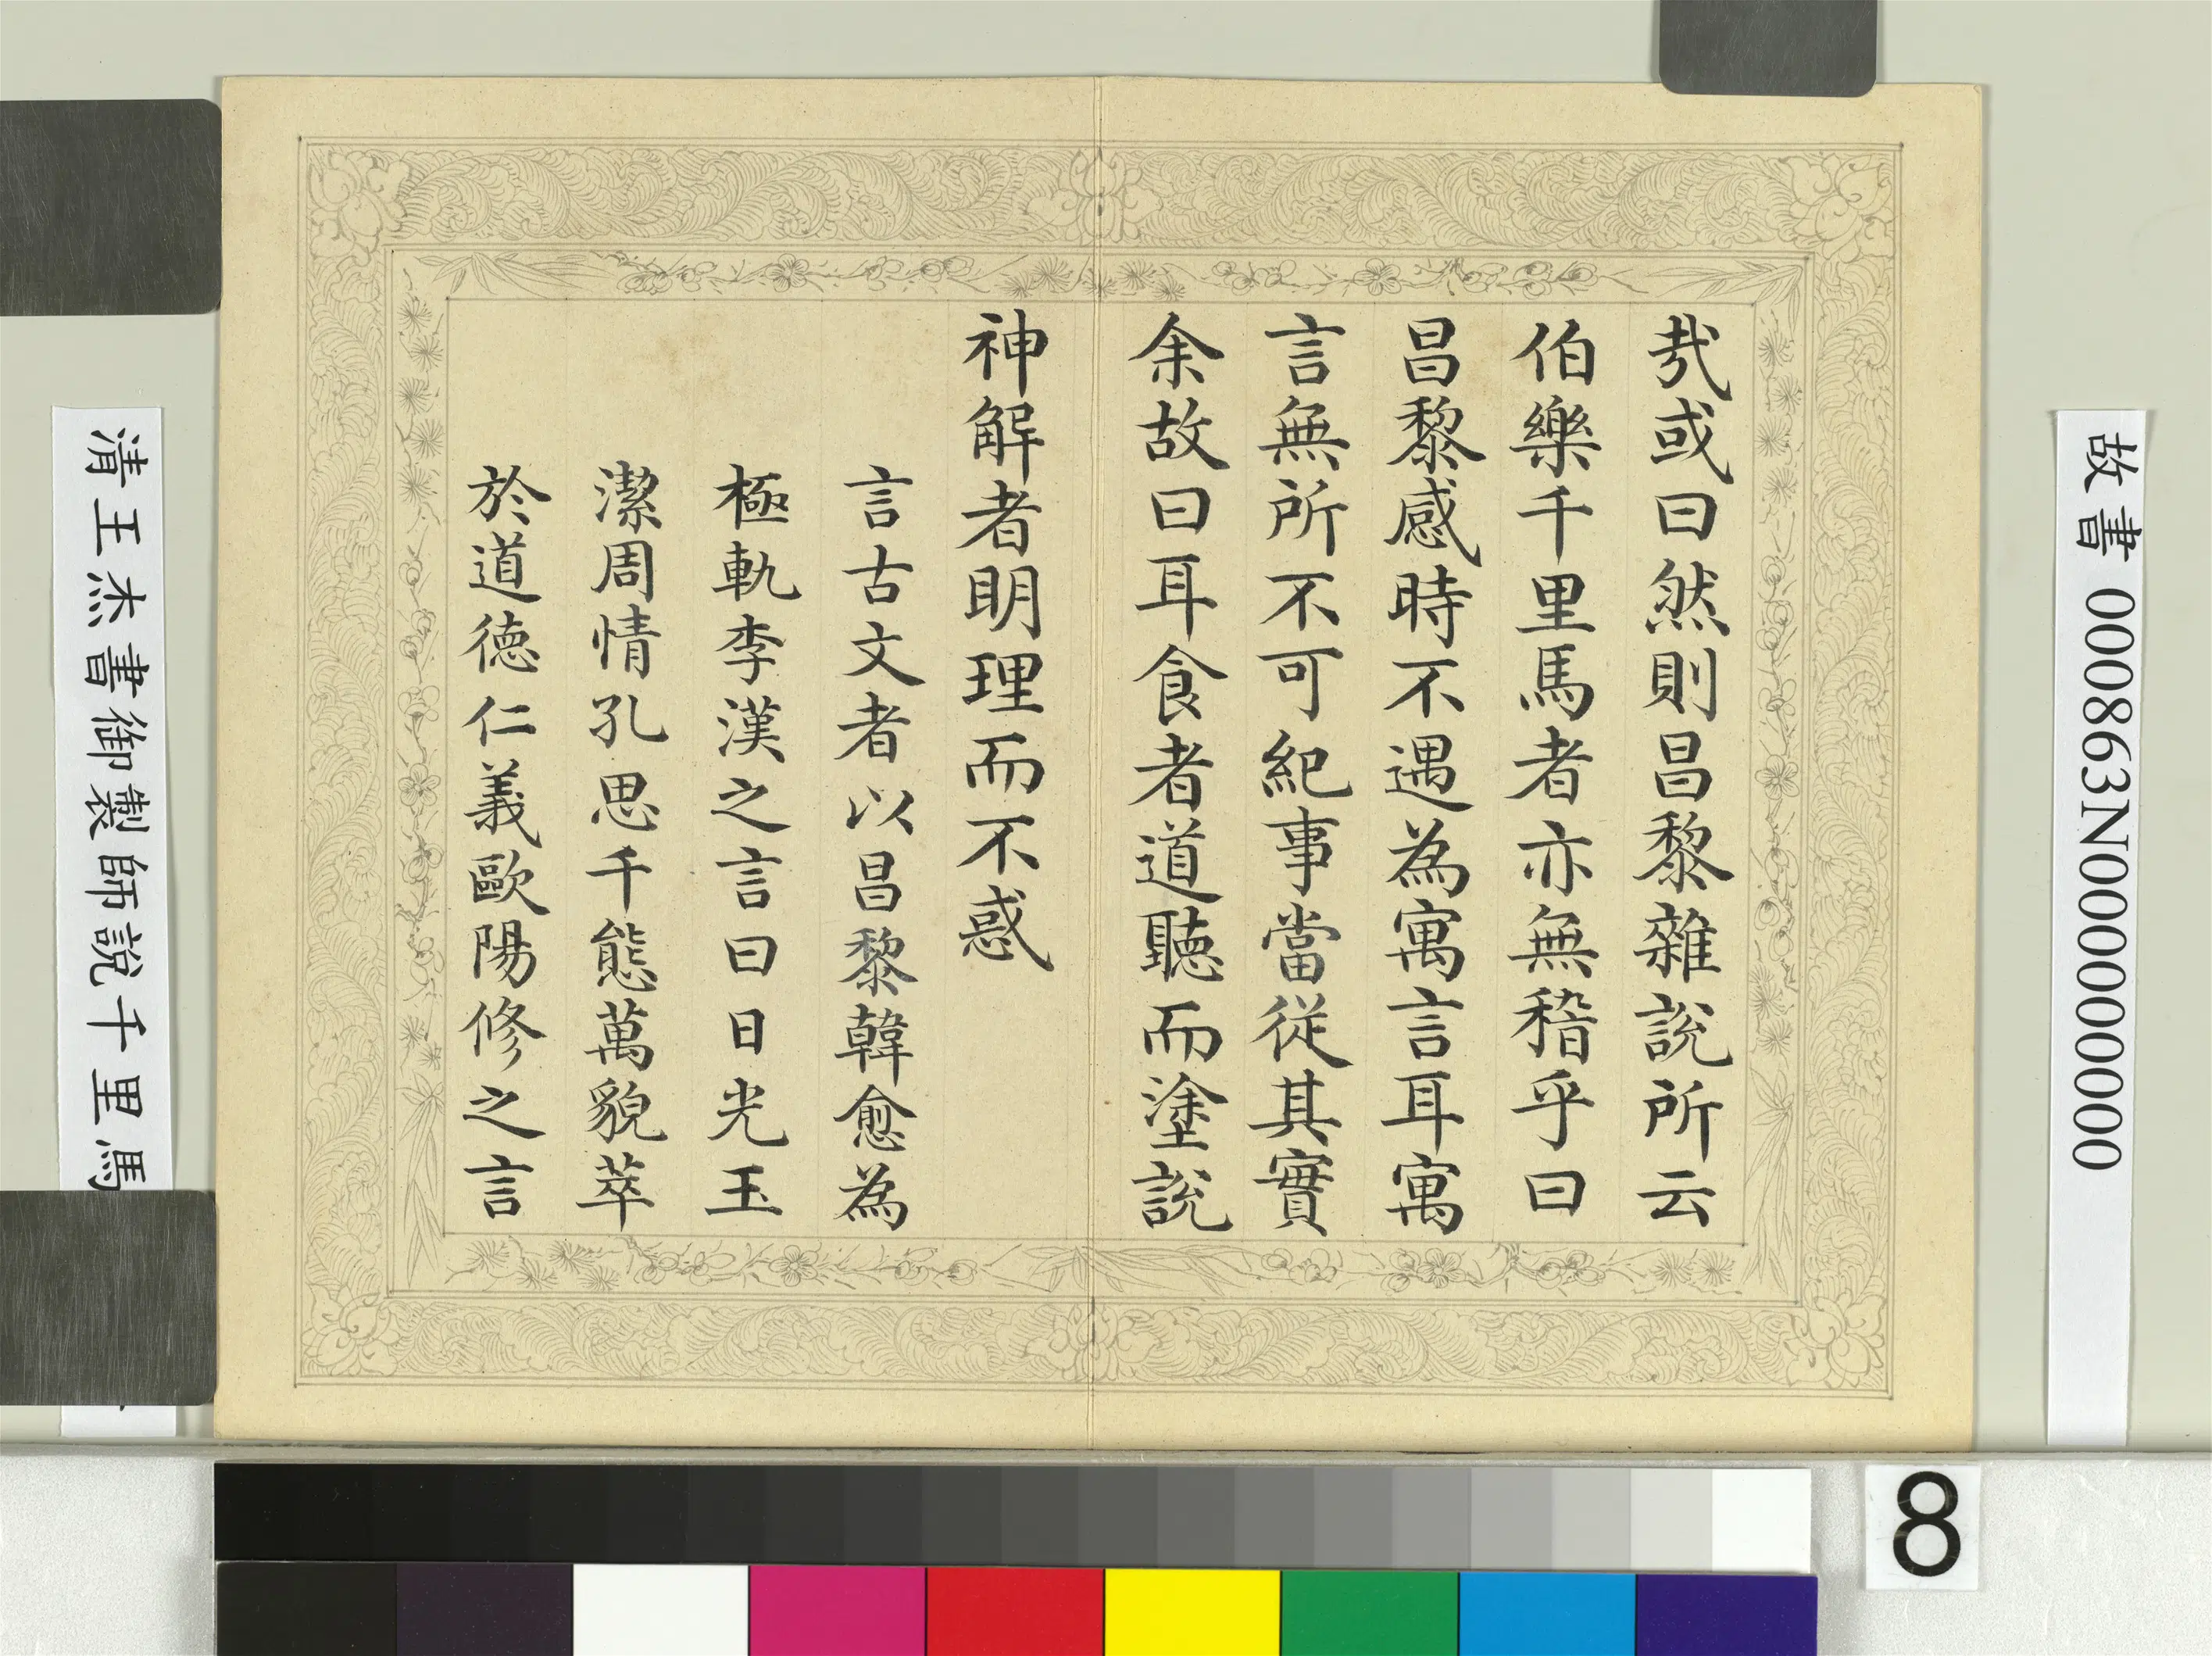 故書 000863N000000000
哉或曰然則昌黎雜說所云
伯樂千里馬者亦無稽乎曰
昌黎感時不遇為寓言耳寓
言無所不可紀事當從其實
余故曰耳食者道聽而塗說
神解者明理而不惑
言古文者以昌黎韓愈為
極軌李漢之言曰日光玉
潔周情孔思千態萬貌萃
於道德仁義歐陽修之言
清王杰書御製師說千里馬
8